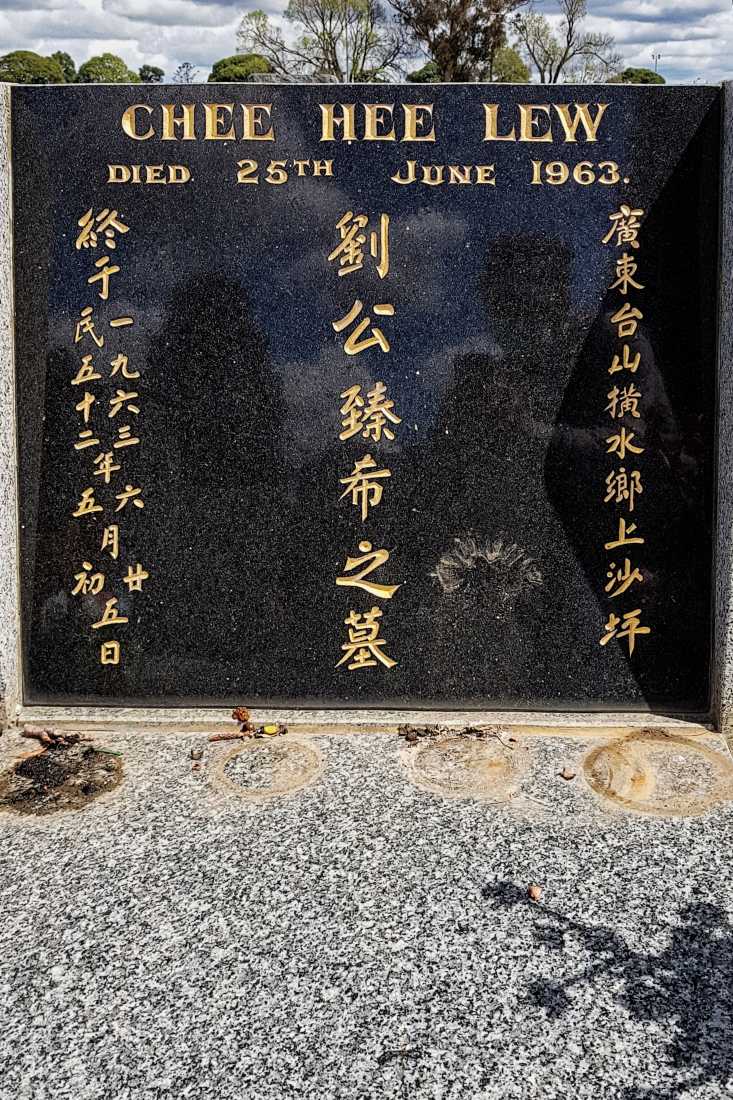 CHEE HEE LEW
DIED 25TH JUNE 1963.
廣東台山橫水鄉上沙坪
劉公臻希之墓
終于一九六三民五十二年六五月廿初五日